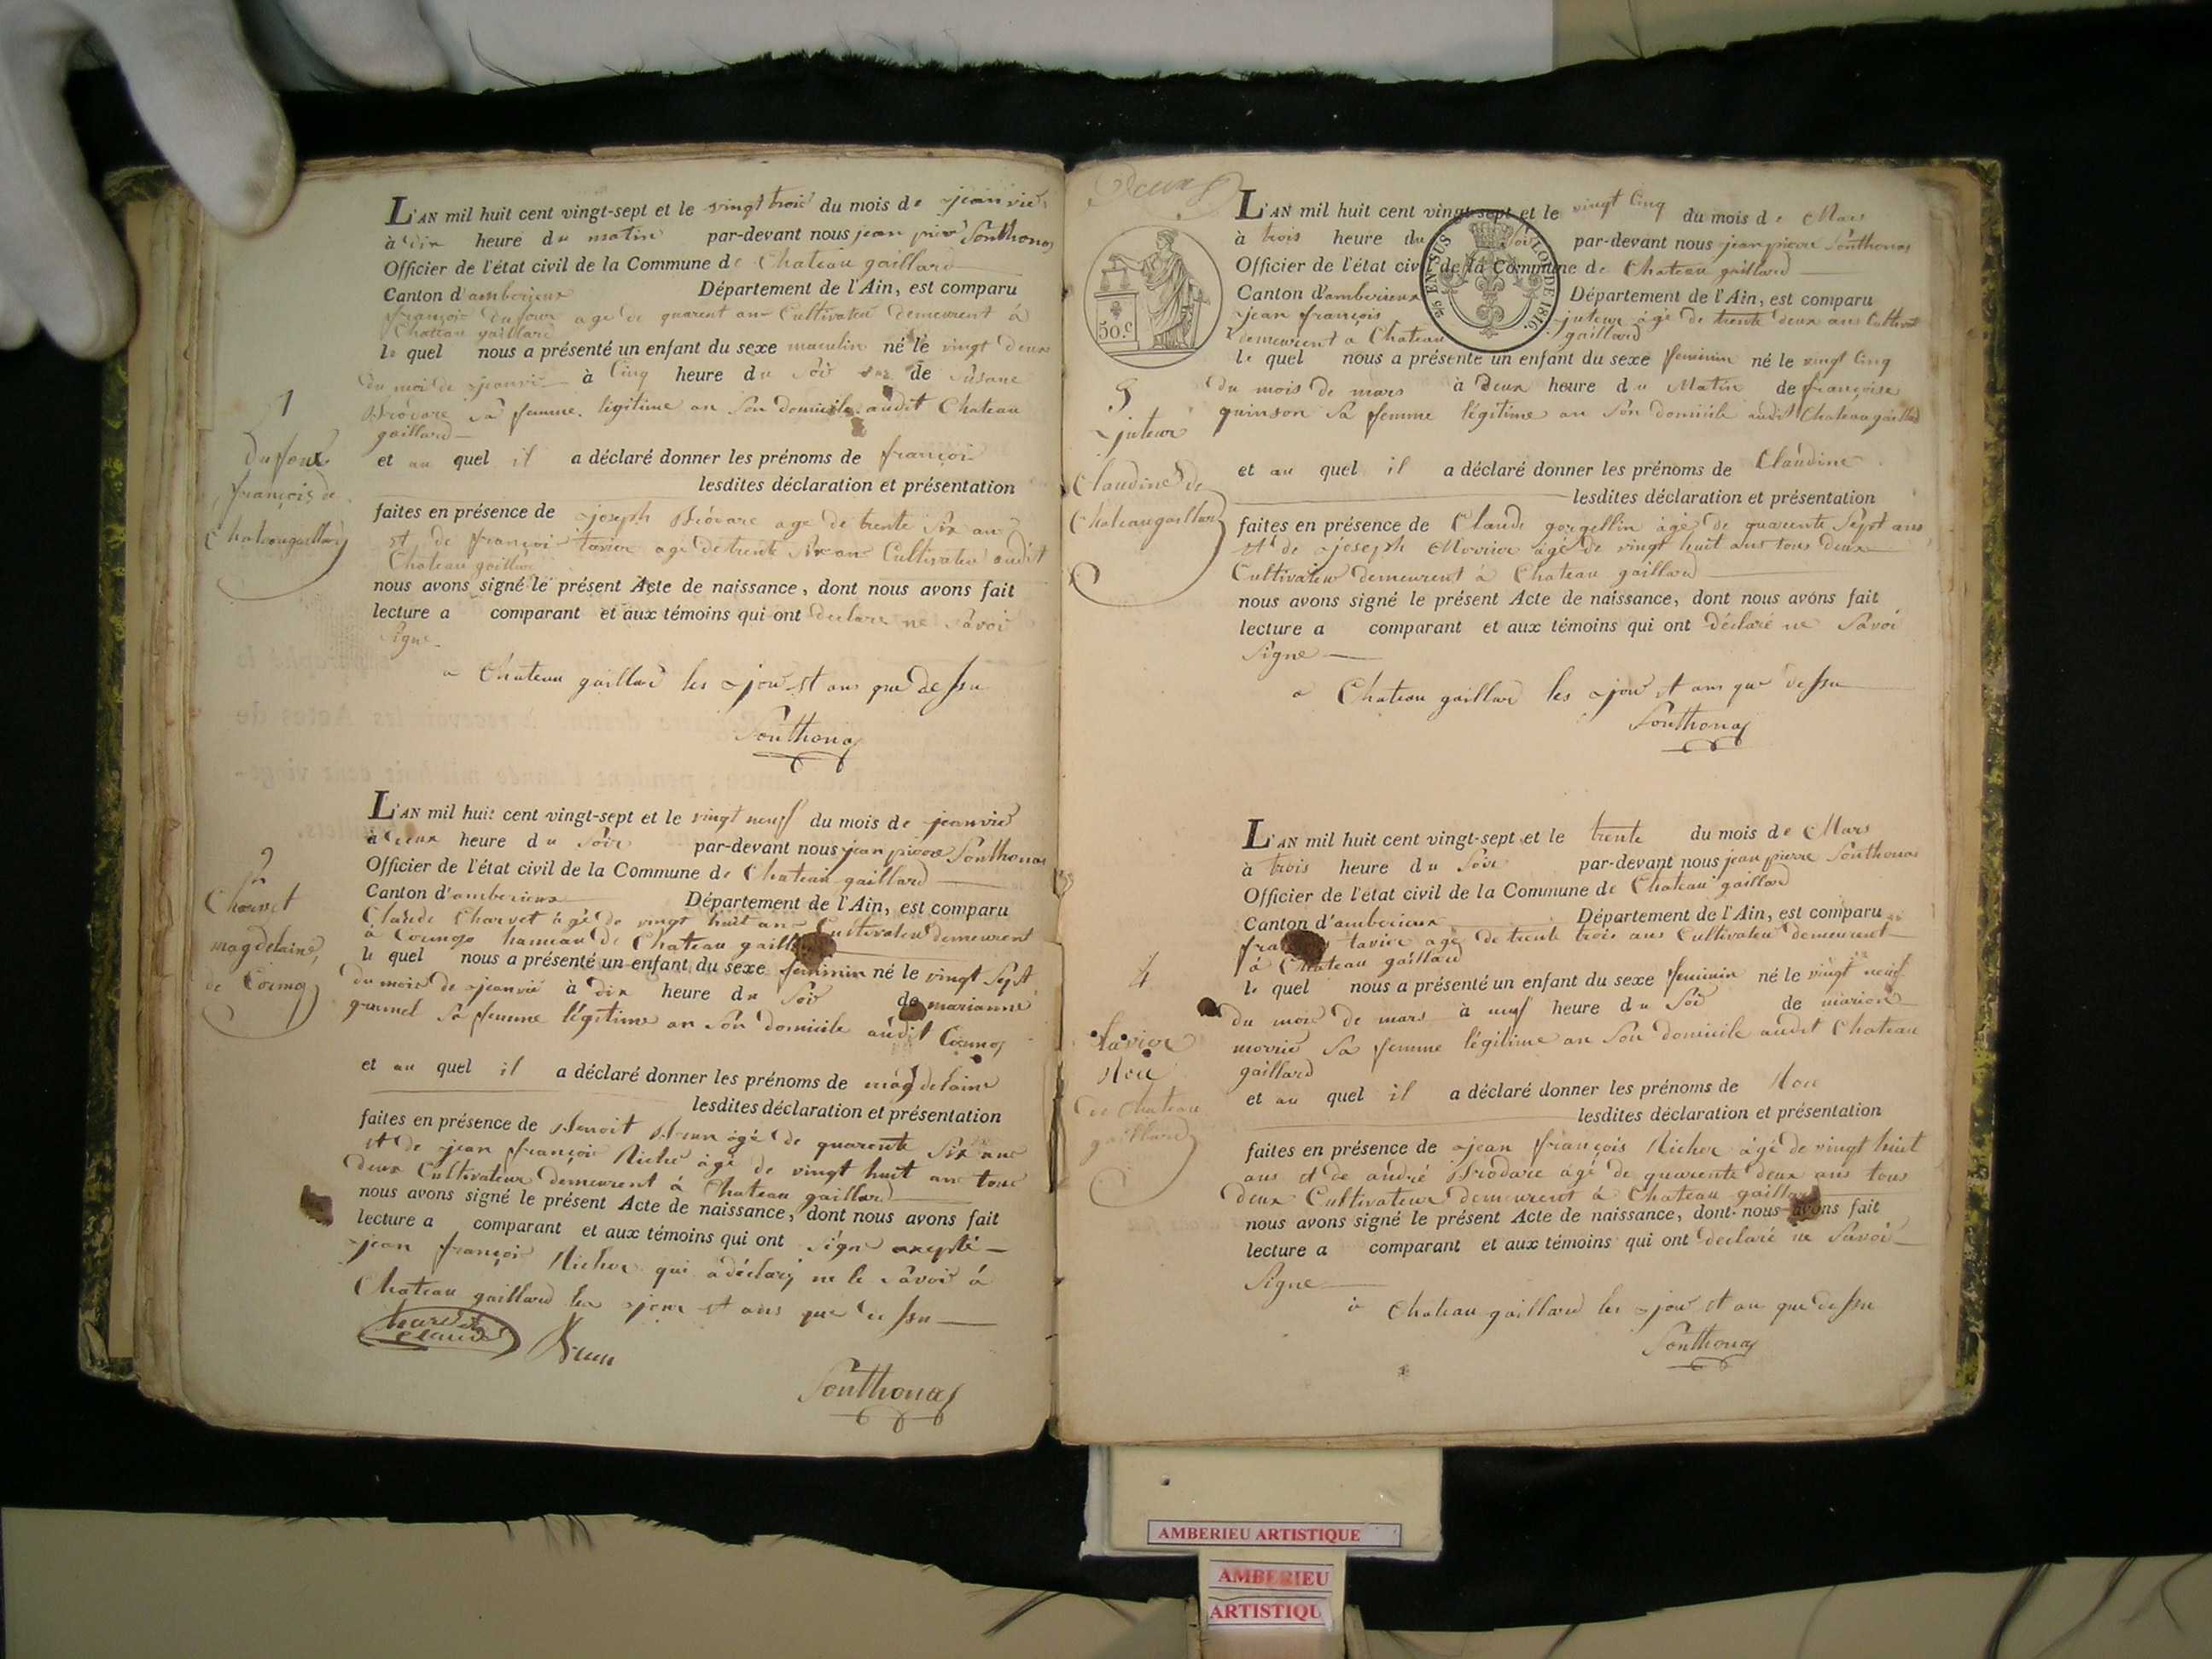 L'AN mil huit cent vingt-sept et le vingt trois du mois de jeanvier
à dix heure du matin par-devant nous jean pierre Ponthonas
Officier de l'état civil de la Commune de Chateau gaillard
Canton d'amberieux Département de l'Ain, est comparu
françois Dufour age de quarent an Cultivateu demeurent à
Chateau gaillard
le quel nous a présenté un enfant du sexe masculin né le vingt deux
du moi de jeanvie à Cinq heure du Soir de Susane
sa femme légitime an Son domicile audit Chateau
gaillard
1
Dufour
françois de
Chateaugaillard
et au quel il a déclaré donner les prénoms de françois
lesdites déclaration et présentation
faites en présence de joseph age de trente Six an
et de françoi tavier age de trente Six an Cultivateu audit
Chateau gaillard
nous avons signé le présent Acte de naissance, dont nous avons fait
lecture a comparant et aux témoins qui ont declare ne Savoi
Signe
a Chateau gaillard les jour et ans que dessu
Ponthonas
L'AN mil huit cent vingt-sept et le vingt neuf du mois de jeanvier
à deux heure du Soir par-devant nous jean pierre Ponthonas
Officier de l'état civil de la Commune de Chateau gaillard
Canton d'amberieux Département de l'Ain, est comparu
Claude Charvet âgé de vingt huit an Cultivateu demeurent
à hameau de Chateau
le quel nous a présenté un enfant du sexe feminin né le vingt Sept
du mois de jeanvié à dix heure du Soir de marianne
Sa femme légitime an Son domicile audit
2
Charvet
magdelaine
de
et au quel il a déclaré donner les prénoms de magdelaine
lesdites déclaration et présentation
faites en présence de Benoit Brun âgé de quarente Six ans
et de jean françoi Richer âgé de vingt huit an tous
deux Cultivateur demeurent à Chateau gaillard
nous avons signé le présent Acte de naissance, dont nous avons fait
lecture a comparant et aux témoins qui ont Signe
jean françoi Richer qui a déclaré ne le Savoir à
Chateau gaillard les jour et ans que dessu
Charvet
Claude
Brun
Ponthonas
Deux
L'AN mil huit cent vingt-sept et le vingt Cinq du mois de Mars
à trois heure du Soir par-devant nous jean pierre Ponthonas
Officier de l'état civil de la Commune de Chateau gaillard
Canton d'amberieux Département de l'Ain, est comparu
jean françois juteur âgé de trente deux ans Cultivat
demeurent a Chateau gaillard
50.c
EN SUS
LOI DE 1816.
le quel nous a présenté un enfant du sexe feminin né le vingt Cinq
du mois de mars à deux heure du Matin de françoise
quinson Sa femme légitime an Son domicile audit Chateau gaillard
juteur
Claudine de
Chateaugaillard
et au quel il a déclaré donner les prénoms de Claudine
lesdites déclaration et présentation
faites en présence de Claude gorgellin âgé de quarente Sept ans
et de joseph Morrier âgé de vingt huit ans tous deux
Cultivateu demeurent à Chateau gaillard
nous avons signé le présent Acte de naissance, dont nous avons fait
lecture a comparant et aux témoins qui ont déclaré ne Savoi
Signe
a Chateau gaillard les jour et ans que dessu
Ponthonas
L'AN mil huit cent vingt-sept et le trente du mois de Mars
à trois heure du Soir par-devant nous jean pierre Ponthonas
Officier de l'état civil de la Commune de Chateau gaillard
Canton d'amberieux Département de l'Ain, est comparu
tavier age de trente trois ans Cultivateu demeurent
à Chateau gaillard
le quel nous a présenté un enfant du sexe feminin né le vingt neuf
du mois de mars à neuf heure du Soir de marion
morrier Sa femme légitime an Son domicile audit Chateau
gaillard
4
tavier
de Chateau
gaillard
et au quel il a déclaré donner les prénoms de
lesdites déclaration et présentation
faites en présence de jean françois Richer âgé de vingt huit
ans et de andré age de quarente deux ans tous
deux Cultivateur demeurent à Chateau gaillard
nous avons signé le présent Acte de naissance, dont nous avons fait
lecture a comparant et aux témoins qui ont declaré ne Savoi
Signe
à Chateau gaillard les jour et an que dessu
Ponthonas
AMBERIEU ARTISTIQUE
AMBERIEU
ARTISTIQU